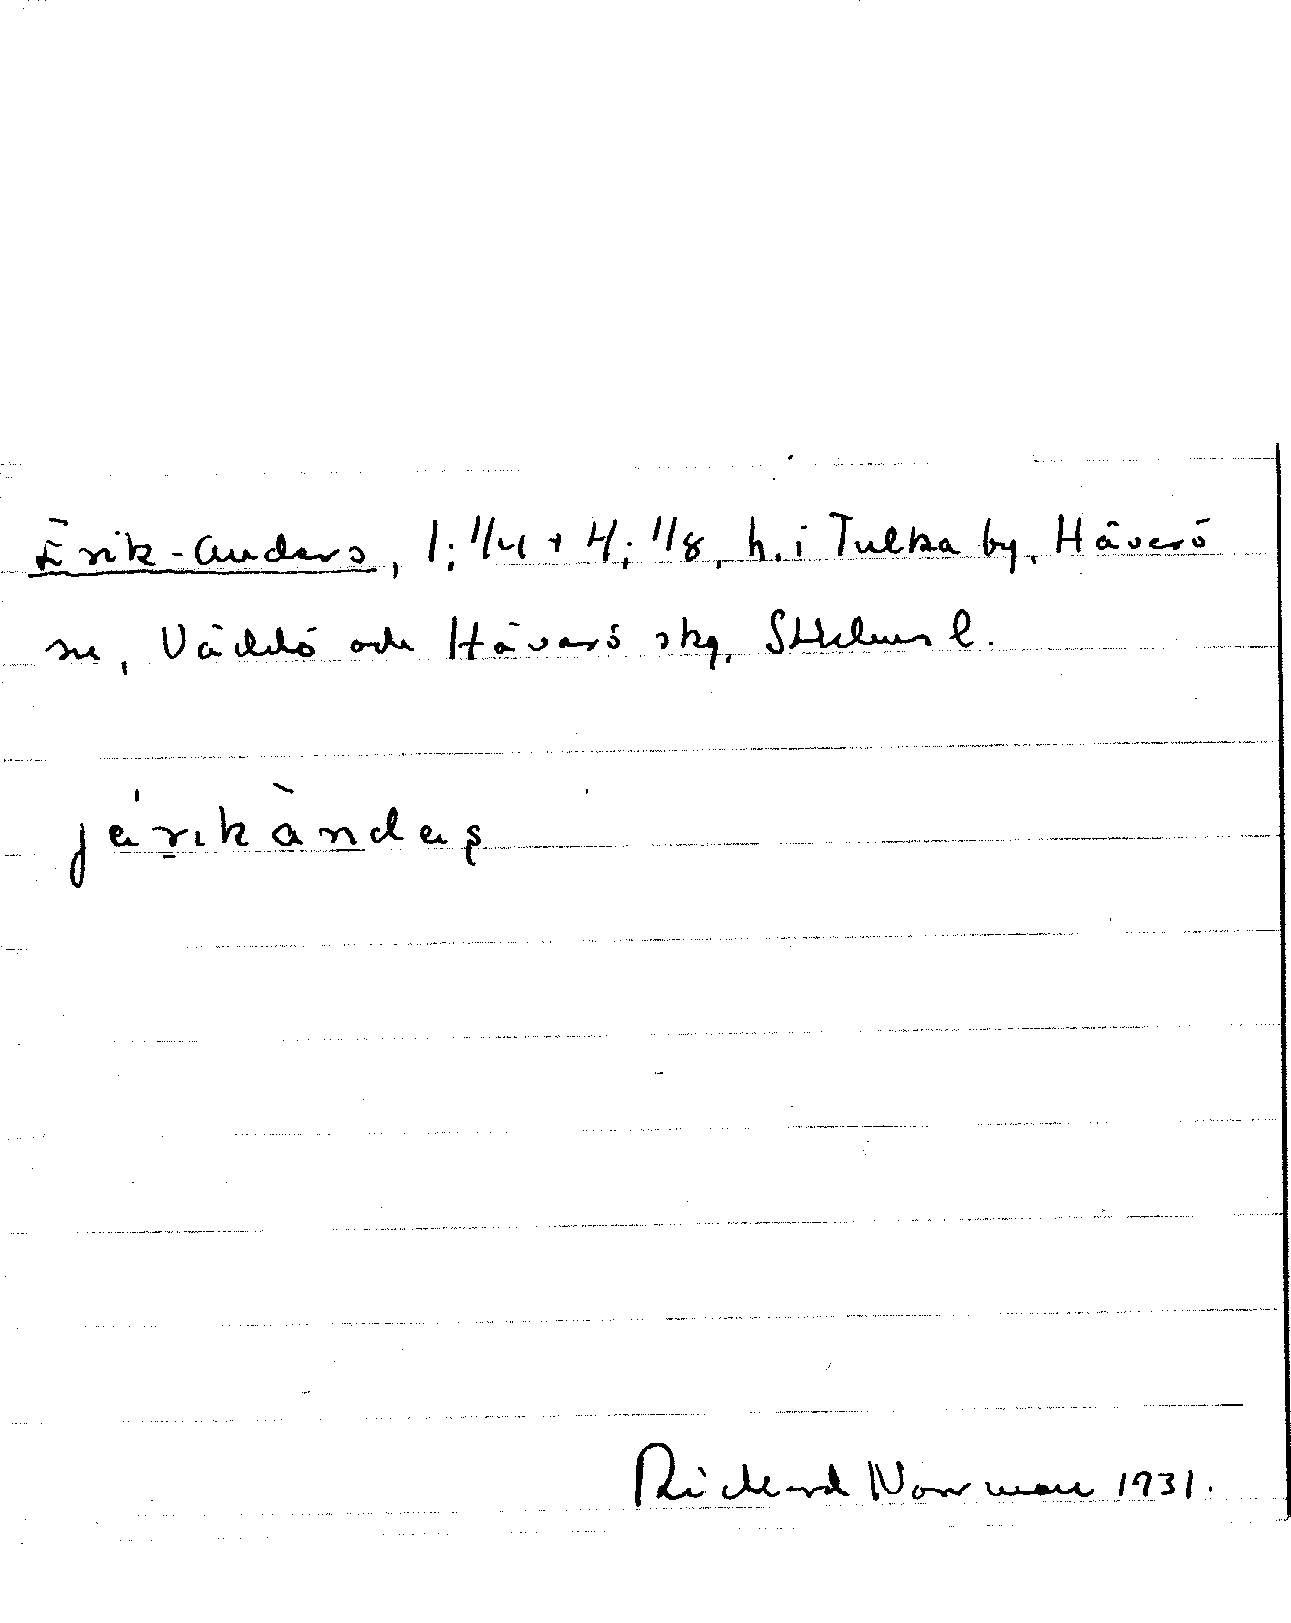 Erik-Anders, 1:1/4 + 4:1/8, h. i Tulka by, Häverö
sn, Väddö och Häverö skg, Sthlms l.
järikàndaș
Richard Norrman 1931.